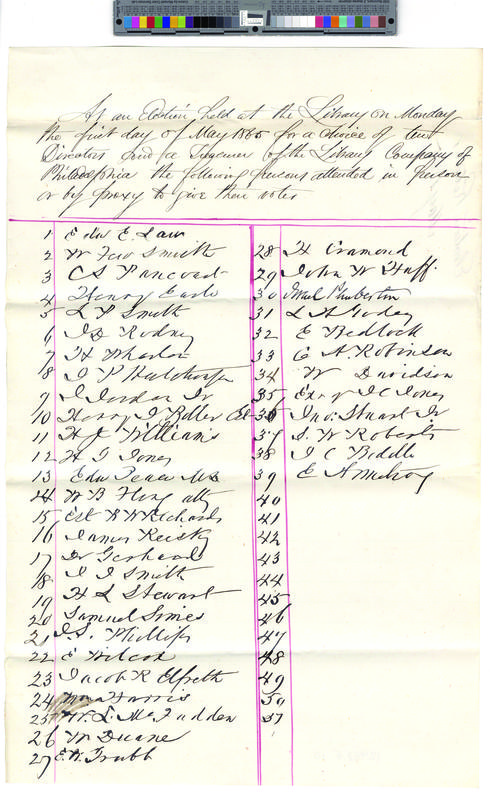 At an Election held at the Library on Monday
the first day of May 1865 for a choice of
Directors and a Treasurer of the Library Company of
Philadelphia the following persons attended in person
or by proxy to give their votes
1 Edw E. Law
2 W Few Smith
3 C S Pancoast
4 Henry Earle
5 L P Smith
6 J D Rodney
7 H Wharton
8 J P Hutchinson
9 J Jordan Jr
10 Harry I
11 H J Williams
12 H I Jones
13 Edw Peace MD
14 W B atty
15 Est W W Richards
16 James
17 Dr Gerhard
18 J J Smith
19 H S Stewart
20 Samuel Simes
21 J S. Phillips
22 E Wilcox
23 Jacob R Elfreth
24 Wm Harris
25 W. L. McFadden
26 W Duane
27 E. W. Grubb
28 H Cramond
29 John W Huff
30 Pemberton
31 L A Godey
32 E Bedlock
33 E A Robinson
34 W Davidson
35 Exr of J C Jones
36 Jno. Stuart Jr
37 S. W Roberts
38 J C Biddle
39 E Armstrong
40
41
42
43
44
45
46
47
48
49
50
51